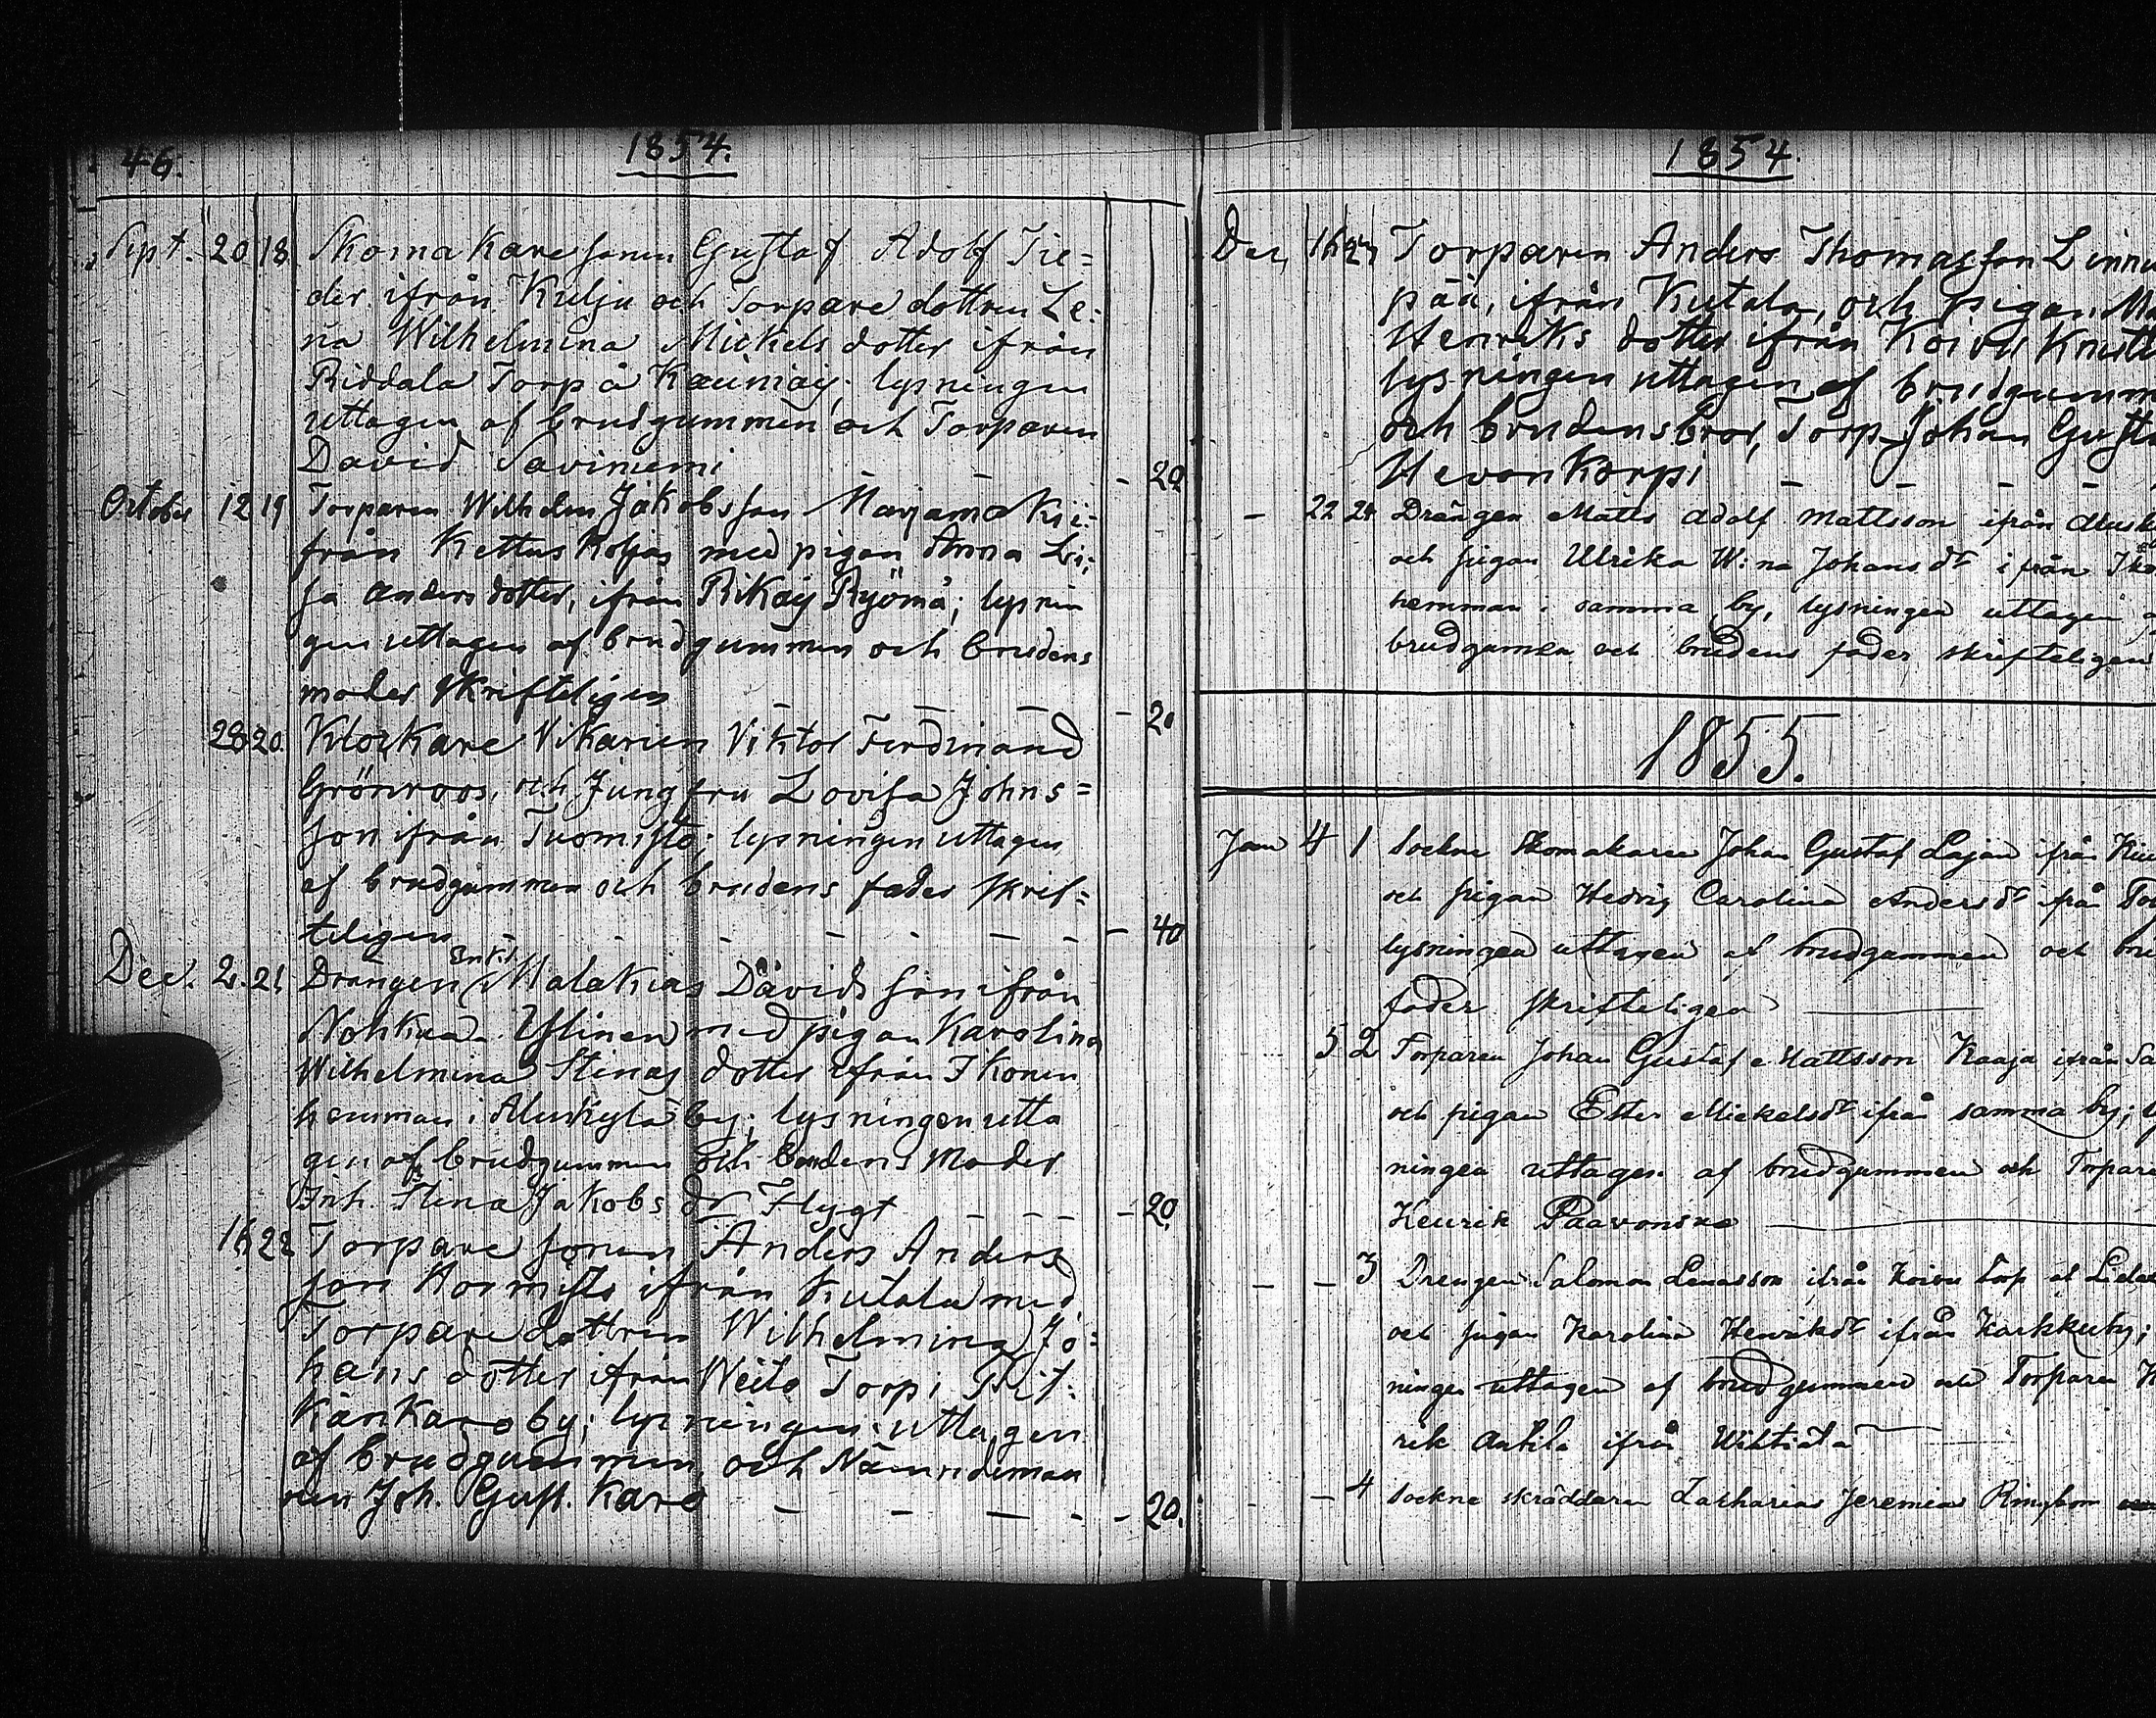 46.
1854.
Sept. 20 18 Skomakaresonen Gustaf Adolf Tie=
der ifrån Kulju och Torpare dottren Le:
na Wilhelmina Mickels dotter ifrån
Riddala Torp å ; lysningen
uttagen af brudgummen och Torparen
David Saviniemi - - - 20
October 12 19 Torparen Wilhelm Jakobsson Marjamäki i:
från Kettus Koljas med pigan Anna Li:
sa Anders dotter, ifrån Rikais Ryömä; lysnin
gen uttagen af brudgummen och brudens
moder skrifteligen - - - - 20
28 20. Klockare Vikarien Viktor Ferdinand
Grönroos, och Jungfru Lovisa Johns=
son ifrån Tuomisto; lysningen uttagen
af brudgummen och brudens fader skrif=
teligen - - - - - - 40
Dec. 2. 21 Drängen Enkl. Malakias Davids son ifrån
Nohkua Ylinen med pigan Karolina
Wilhelmina Stinas dotter ifrån Ikonen
hemman i Aluskylä by; lysningen utta
gen af brudgummen och brudens Moder
Inh. Stina Jakobs dr Flygt - - - - 20.
16 22 Torpare sonen Anders Anders
son Kormisto ifrån Kutala med
Torpare dottren Wilhelmina Jo:
hans dotter ifrån Weito Torp i Pit:
känkare by; lysningen uttagen
af brudgummen, och Nämndeman
nen Joh. Gust. Kare - - - - - 20.
1854.
Dec, 16 23 Torparen Anders Thomasson Linnu
pää, ifrån Kutala, och pigan
Henriks dotter ifrån Koivu
lysningen uttagen af brudgumm
och brudens bror, Torp. Johan Gust
Hevonkorpi - - - -
- 22 24 Drängen Matts Adolf Mattsson ifrån Alusk
och pigan Ulrika W:na Johans dr ifrån Iko
hemman i samma by, lysningen uttagen
brudgumen och brudens fader skrifteligen
1855.
Jan 4 1 Sockne Skomakaren Johan Gustaf Lajan ifrån
och pigan Hedvig Carolina Anders dr ifrån
lysningen uttagen af brudgummen och bru
fader skrifteligen
5 2 Torparen Johan Gustaf Mattsson Kaaja ifrån Sa
och pigan Ester Mickels dr ifrån samma by; ly
ningen uttagen af brudgummen och Torpare
Henrik Paavonske
- - 3 Drengen Saloman Lenasson ifrån Koivu Torp
och pigan Karolina Henriks dr ifrån Karkkuby;
ningen uttagen af brudgummen och Torparen
rik Antila ifrån Wihtiälä
- - 4 Sockne skräddaren Zacharias Jeremias Ringbom